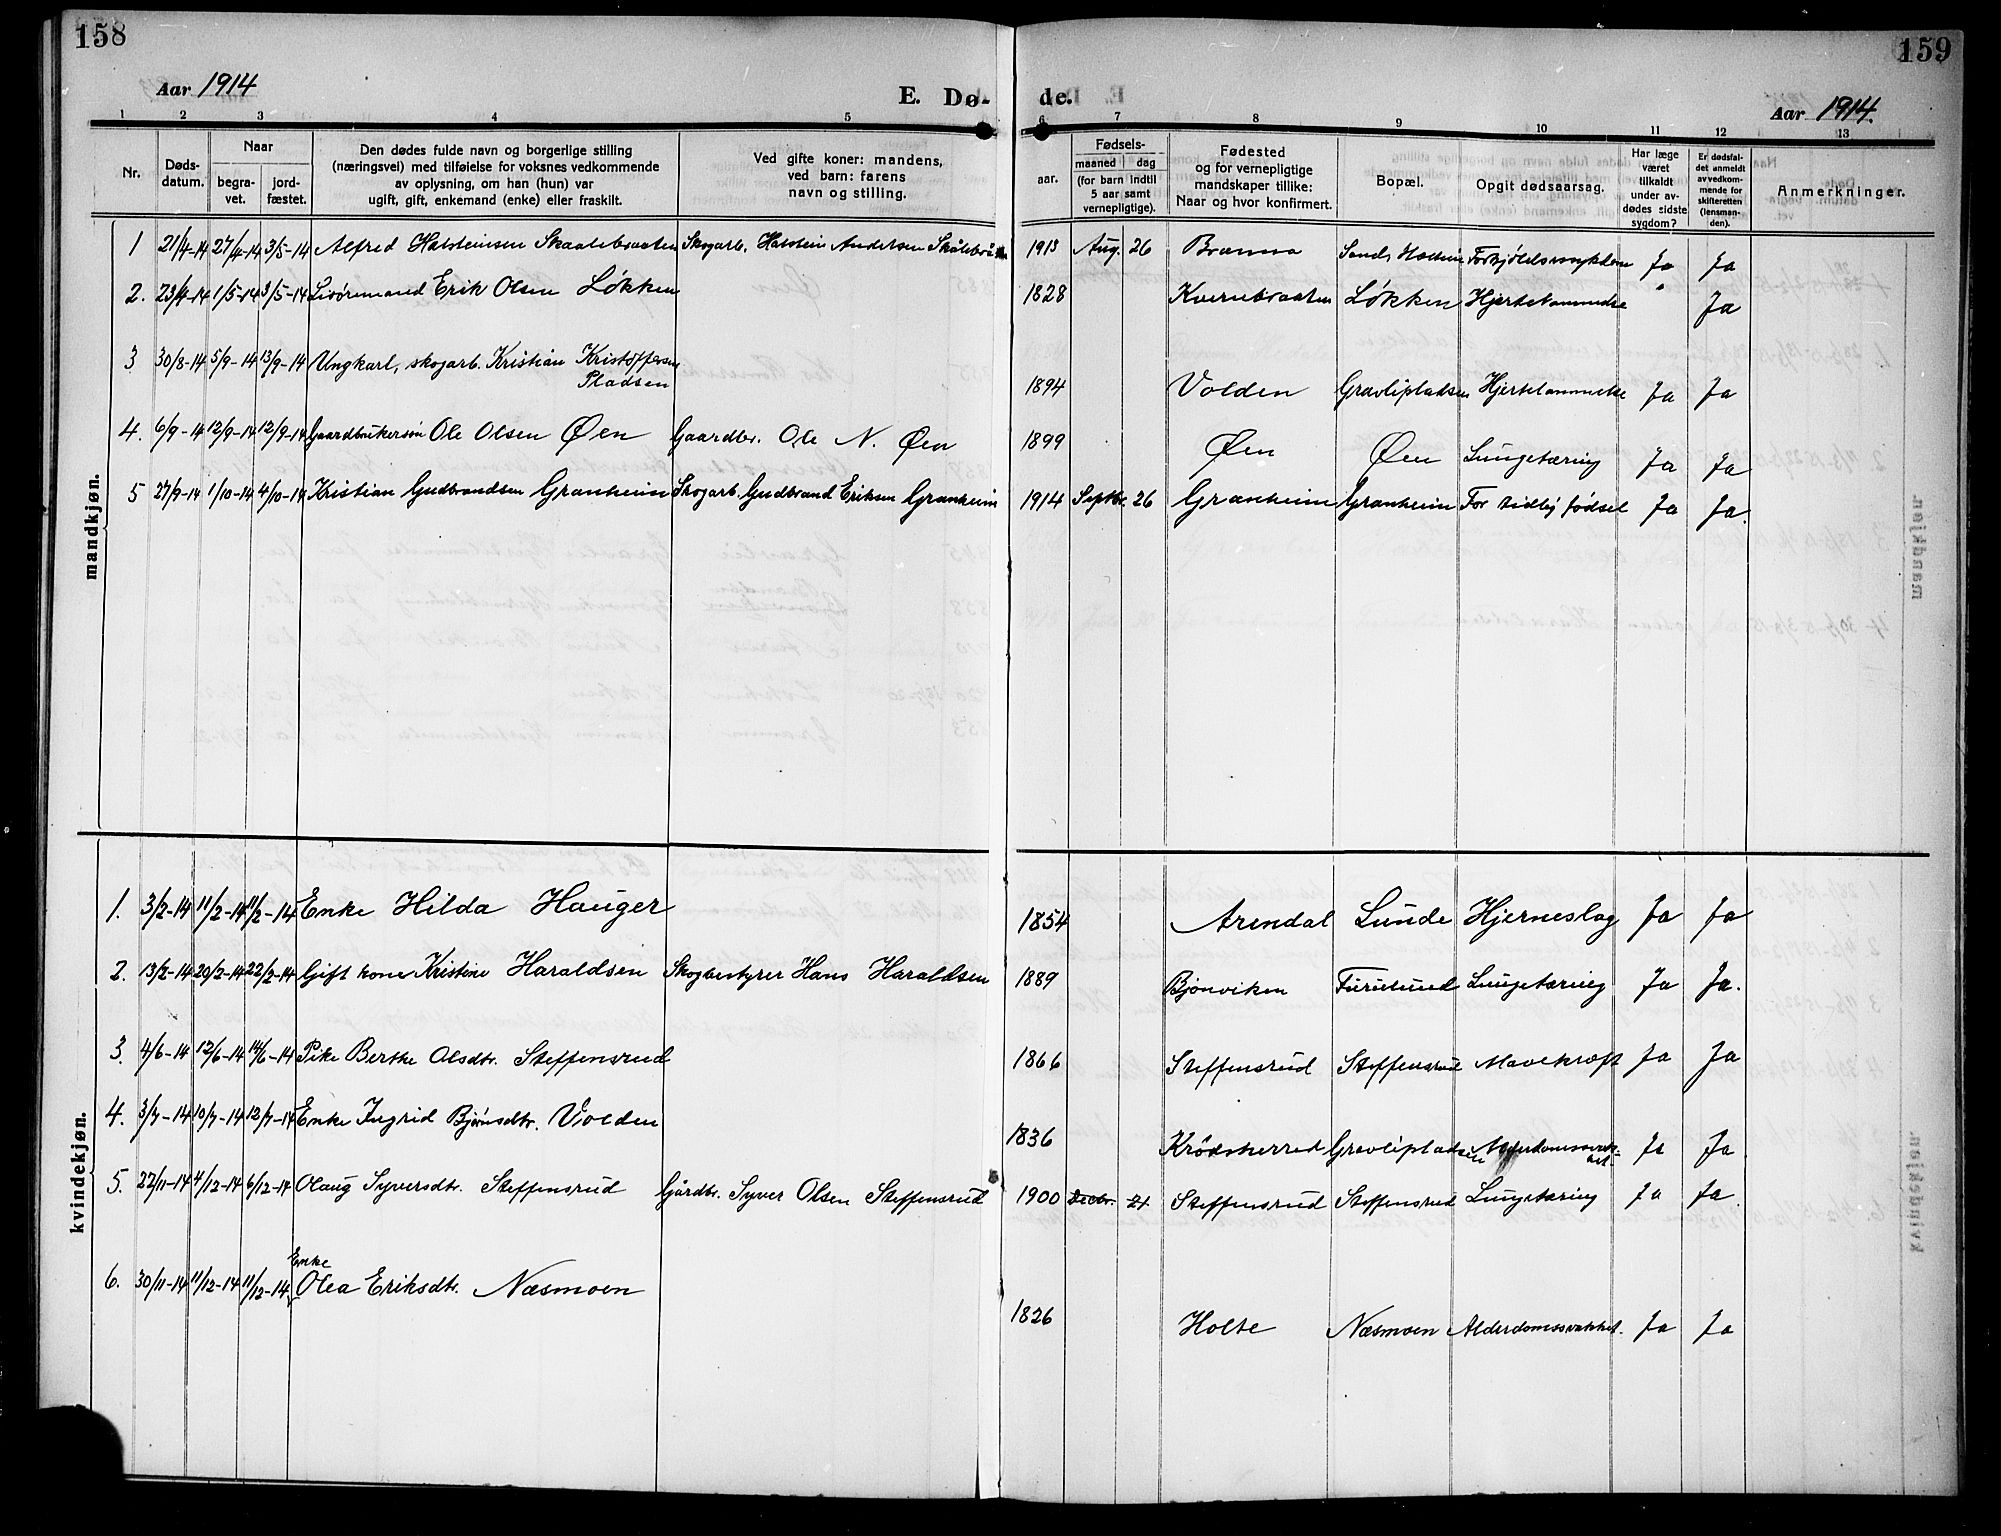 158
159
Aar 1914
E. Dø-
de.
Aar 1914.
1 2 3 4 5 6 7 8 9 10 11 12 13
Nr.
Døds-
datum.
Naar
begra-
vet.
jord-
fæstet.
Den dødes fulde navn og borgerlige stilling
(næringsvei) med tilføielse for voksnes vedkommende
av oplysning, om han (hun) var
ugift, gift, enkemand (enke) eller fraskilt.
Ved gifte koner: mandens,
ved barn: farens
navn og stilling.
Fødsels-
aar.
maaned
dag
(for barn indtil
5 aar samt
vernepligtige).
Fødested
og for vernepligtige
mandskaper tillike:
Naar og hvor konfirmert.
Bopæl.
Opgit dødsaarsag.
Har læge
været
tilkaldt
under av-
dødes sidste
sygdom?
Er dødsfal-
det anmeldt
av vedkom-
mende for
skifteretten
(lensman-
den).
Anmerkninger.
mandkjøn.
1 21/4-14 27/4-14 3/5-14 Alfred Halsteinsen Skaalebraaten Skogarb. Halstein Andersen 1913 Aug. 26 Bræmna Ja Ja
2. 23/4-14 1/5-14 3/5-14 Livøremand Erik Olsen Løkken 1828 Kvernebraaten Løkken Hjertelammelse " Ja
3 30/8-14 5/9-14 13/9-14 Ungkarl, skogarb. Kristian Kristoffersen
Pladsen 1894 Volden Gravlipladsen Hjertelammelse Ja Ja
4. 6/9-14 12/9-14 12/9-14 Gaardbrukersøn Ole Olsen Øen Gaardbr. Ole N. Øen 1899 Øen Øen Lungetæring Ja Ja
5 27/9-14 1/10-14 4/10-14 Kristian Gudbrandsen Granheim Skogarb. Gudbrand Eriksen Granheim 1914 Septbr. 26 Granheim Granheim For tidlig fødsel Ja Ja.
kvindekjøn.
1. 3/2-14 11/2-14 11/2-14 Enke Hilda Hauger 1854 Arendal Lunde Hjerneslag Ja Ja
2. 13/2-14 20/2-14 22/2-14 Gift kone Kristine Haraldsen Skogbestyrer Hans Haraldsen 1889 Bjønviken Furulund Lungetæring Ja Ja.
3. 4/6-14 12/6-14 14/6-14 Pike Berthe Olsdtr. Steffensrud 1866 Steffensrud Steffensrud Mavekræft Ja Ja
4. 3/7-14 10/7-14 12/7-14 Enke Ingrid Bjørnsdtr. Volden 1836 Krødsherred Gravlipladsen Alderdomssvak-
het Ja Ja
5. 22/11-14 4/12-14 6/12-14 Olaug Syversdtr. Steffensrud Gårdbr. Syver Olsen Steffensrud 1900 Decbr. 21. Steffensrud Steffensrud Lungetæring Ja Ja.
Enke
6. 30/11-14 11/12-14 11/12-14 Olea Eriksdtr. Næsmoen 1826 Holte Næsmoen Alderdomssvakhet. Ja Ja